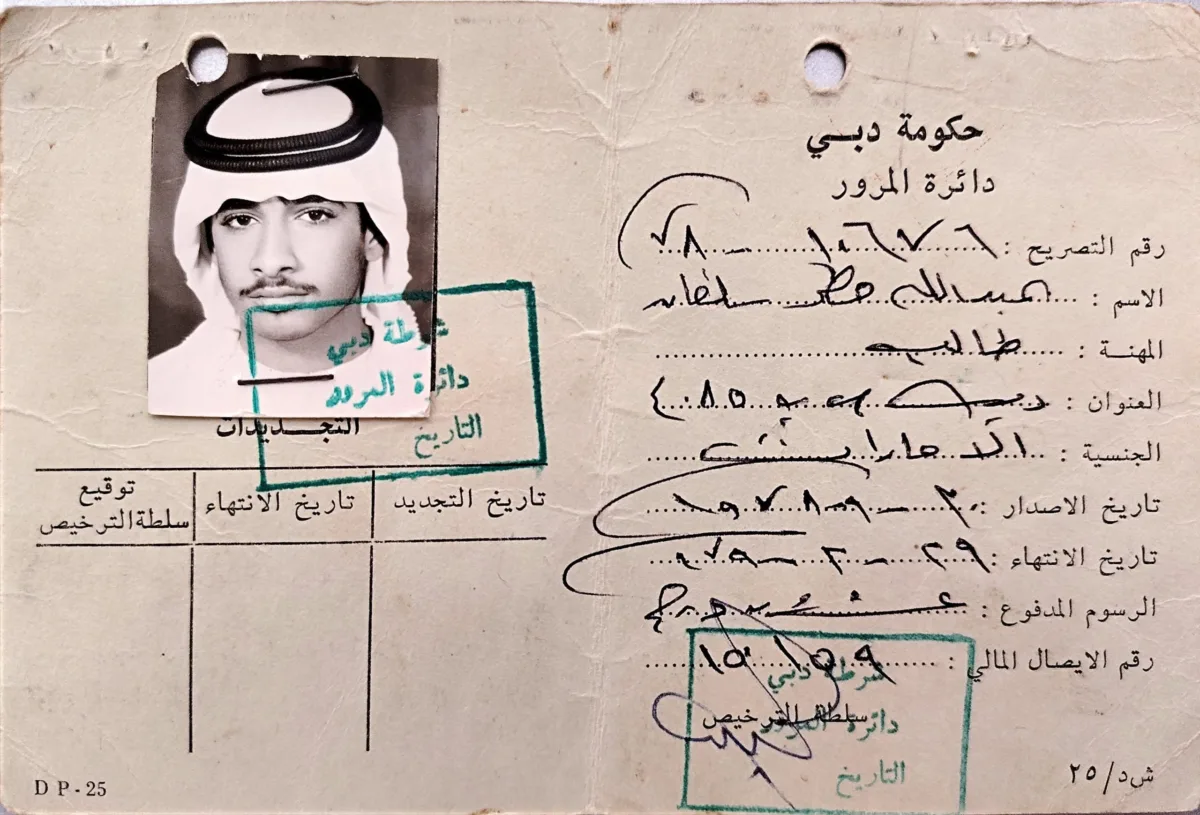 حكومة دبـي
دائرة المرور
رقم التصريح : ١٠٦٧٦ - ٧٨
الاسم : عبدالله مطر سلطان
المهنـة : طالب
العنوان : دبي
الجنسية : الامارات
تاريخ الاصدار : ٣٠ - ٩ - ١٩٧٨
تاريخ الانتهاء : ٢٩ - ٣ -
الرسوم المدفوع :
رقم الايصال المالي : ١٥١٥٩
سلطة الترخيص
شرطة دبي
دائرة المرور
التاريخ
ش د/ ٢٥
شرطة دبي
دائرة المرور
التاريخ
التجـديدات
تاريخ التجديد تاريخ الانتهاء توقيع سلطة الترخيص
D P - 25